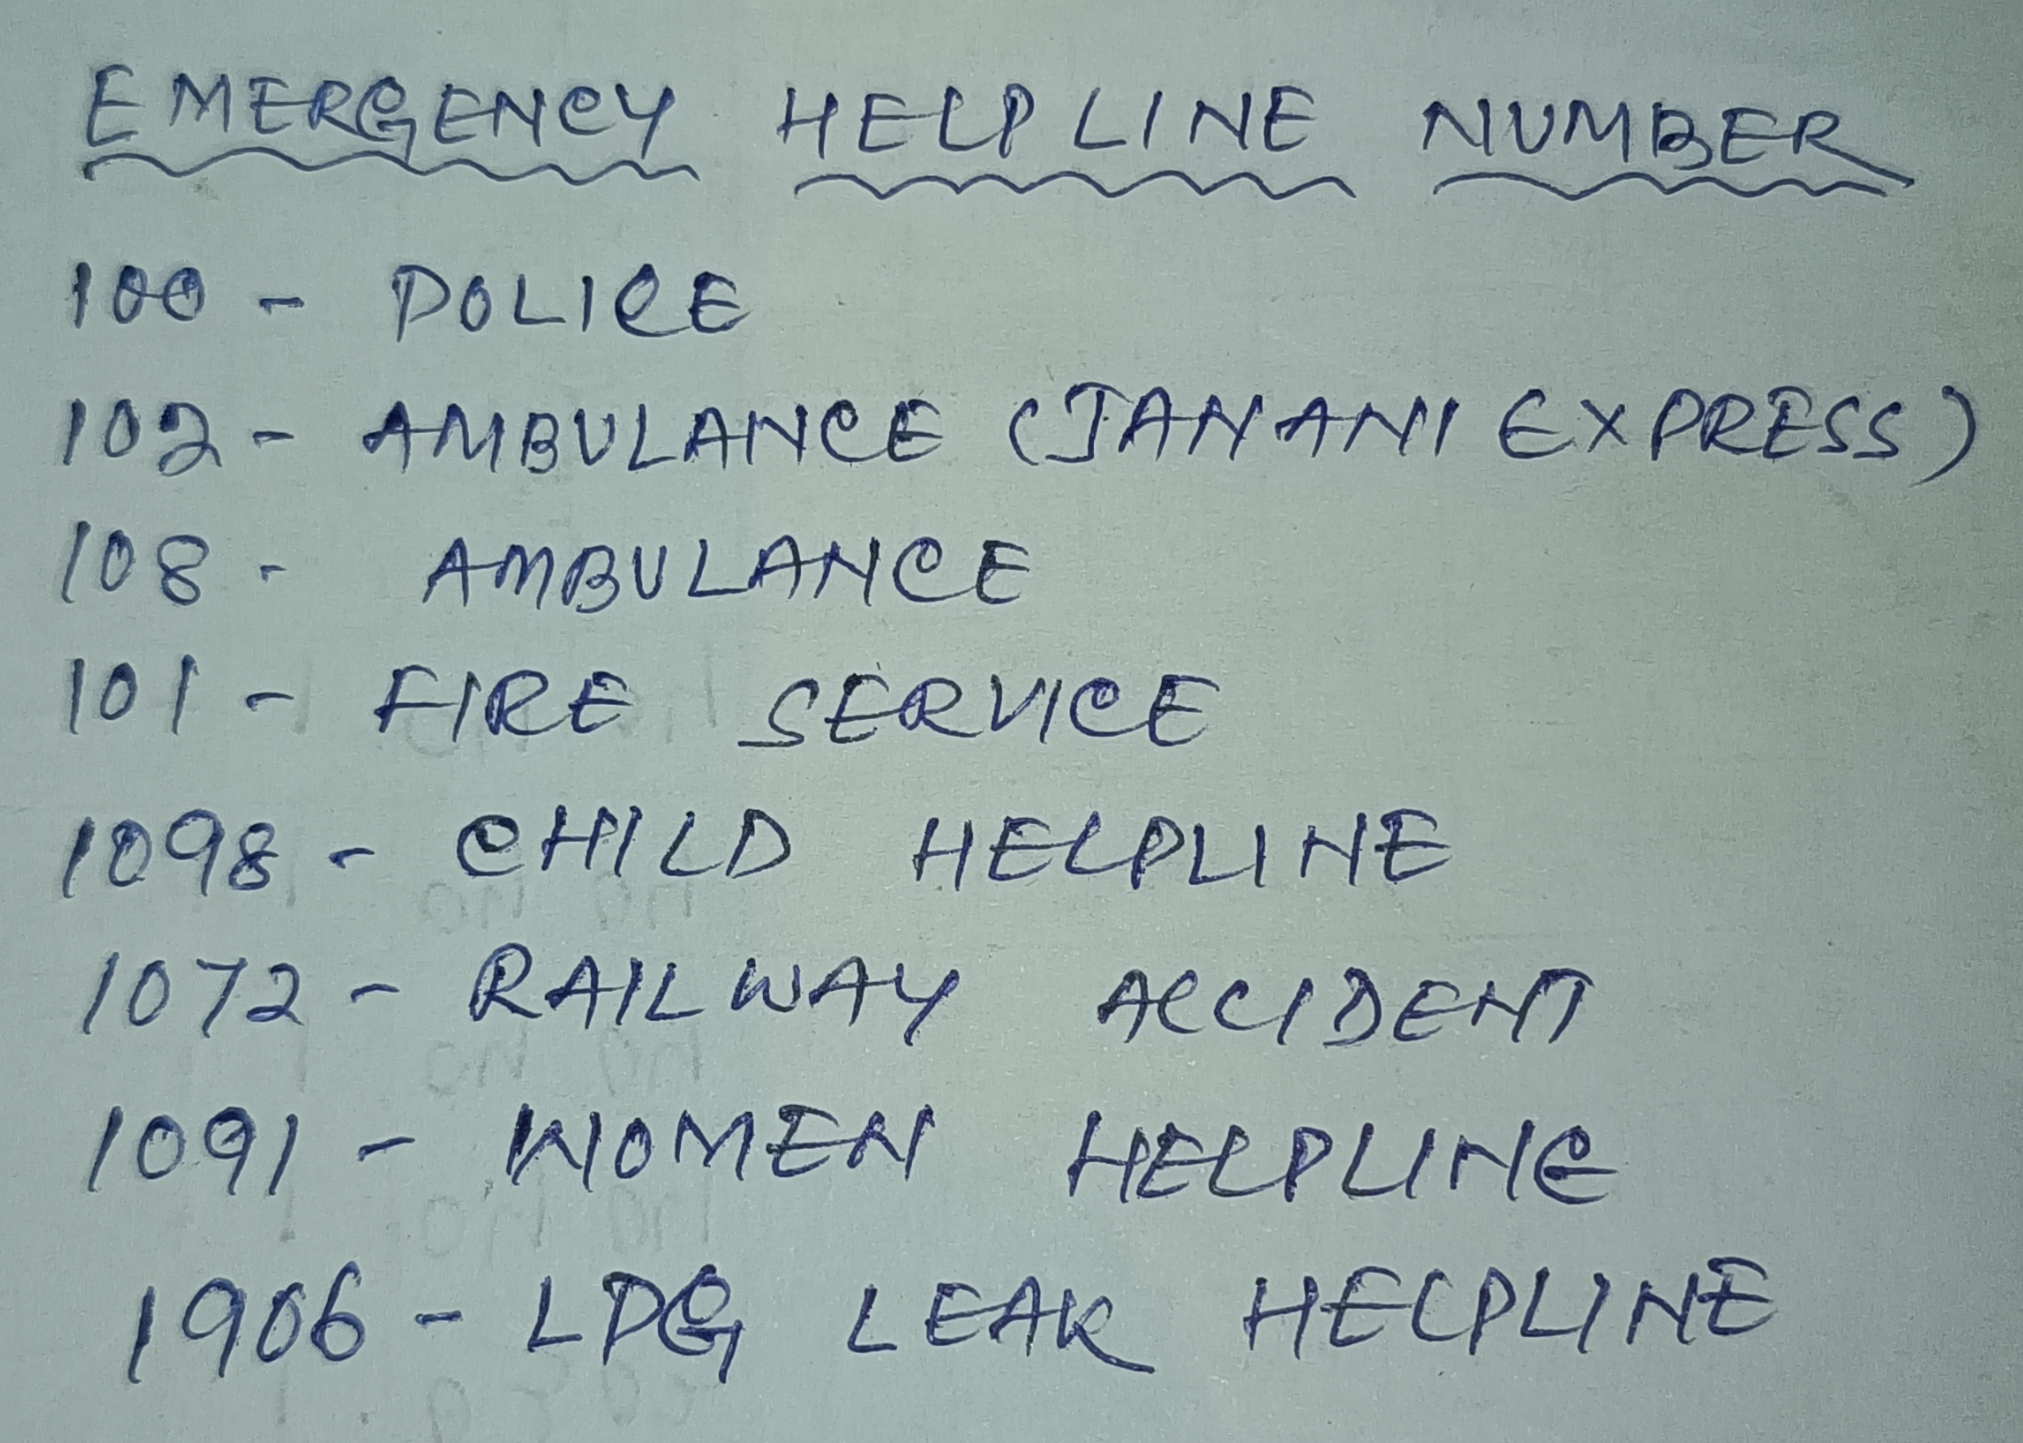 EMERGENCY HELPLINE NUMBER
100 - POLICE
102 - AMBULANCE (JANANI EXPRESS)
108 - AMBULANCE
101 - FIRE SERVICE
1098 - CHILD HELPLINE
1072 - RAILWAY ACCIDENT
1091 - WOMEN HELPLINE
1906 - LPG LEAK HELPLINE